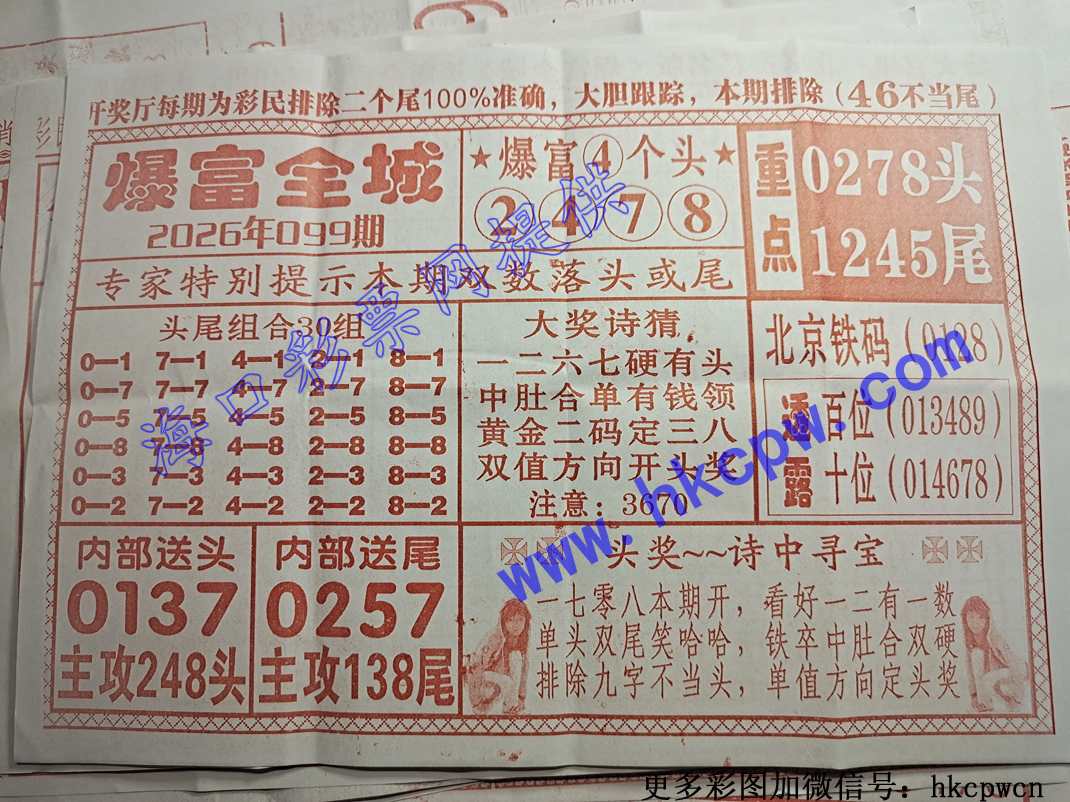 开奖厅每期为彩民排除二个尾100%准确，大胆跟踪，本期排除（46不当尾）
爆富全城
2026年099期
★爆富④个头★
②④⑦⑧
重点
0278头
1245尾
专家特别提示本期双数落头或尾
头尾组合30组
0—1 7—1 4—1 2—1 8—1
0—7 7—7 4—7 2—7 8—7
0—5 7—5 4—5 2—5 8—5
0—8 7—8 4—8 2—8 8—8
0—3 7—3 4—3 2—3 8—3
0—2 7—2 4—2 2—2 8—2
大奖诗猜
一二六七硬有头
中肚合单有钱领
黄金二码定三八
双值方向开头奖
注意：3670
北京铁码（0128）
透露
百位（013489）
十位（014678）
内部送头
0137
主攻248头
内部送尾
0257
主攻138尾
头奖~~诗中寻宝
一七零八本期开，看好一二有一数
单头双尾笑哈哈，铁卒中肚合双硬
排除九字不当头，单值方向定头奖
海口彩票网提供
www.hkcpw.com
更多彩图加微信号：hkcpwcn